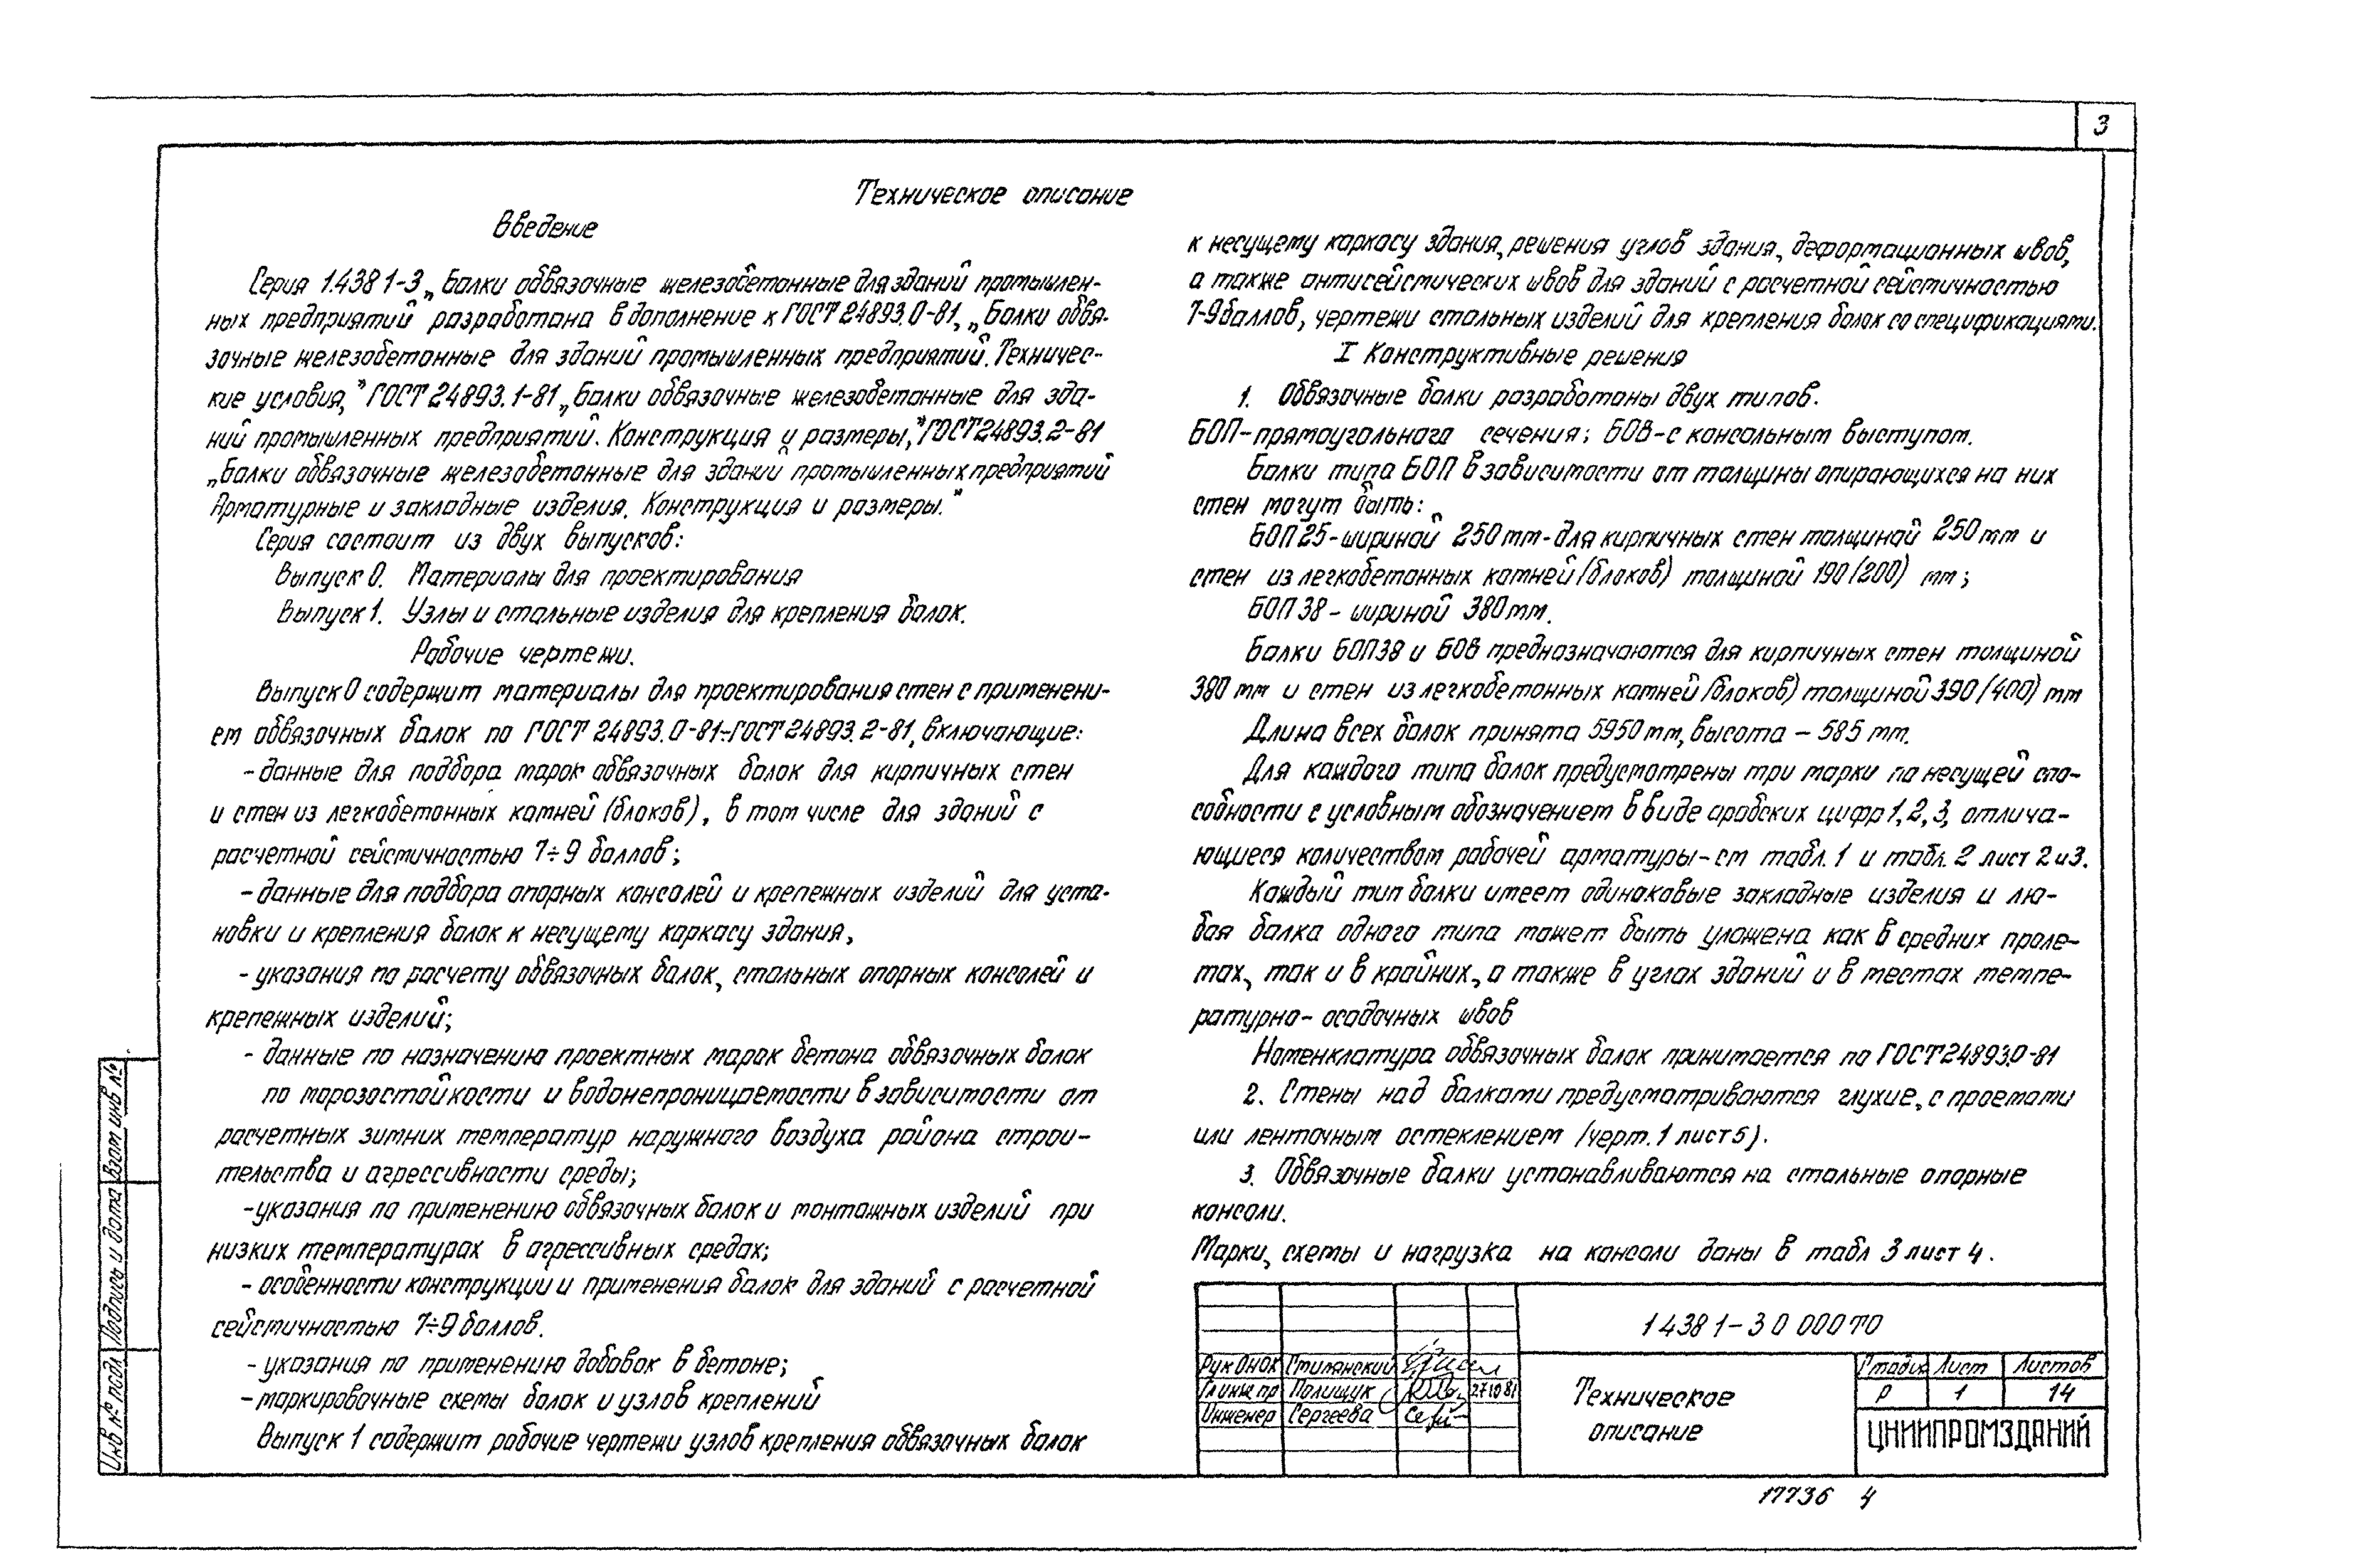 3
Техническое описание
Введение
Серия 1.438 1-3 „Балки обвязочные железобетонные для зданий промышлен-
ных предприятий разработана в дополнение к ГОСТ 24893.0-81, „Балки обвя-
зочные железобетонные для зданий промышленных предприятий. Техничес-
кие условия,” ГОСТ 24893.1-81 „Балки обвязочные железобетонные для зда-
ний промышленных предприятий. Конструкция и размеры,” ГОСТ 24893.2-81
„Балки обвязочные железобетонные для зданий промышленных предприятий
Арматурные и закладные изделия. Конструкция и размеры.”
Серия состоит из двух выпусков:
Выпуск 0. Материалы для проектирования
Выпуск 1. Узлы и стальные изделия для крепления балок.
Рабочие чертежи.
Выпуск 0 содержит материалы для проектирования стен с применени-
ем обвязочных балок по ГОСТ 24893.0-81÷ГОСТ 24893.2-81, включающие:
-данные для подбора марок обвязочных балок для кирпичных стен
и стен из легкобетонных камней (блоков), в том числе для зданий с
расчетной сейсмичностью 7÷9 баллов;
-данные для подбора опорных консолей и крепежных изделий для уста-
новки и крепления балок к несущему каркасу здания,
- указания по расчету обвязочных балок, стальных опорных консолей и
крепежных изделий;
- данные по назначению проектных марок бетона обвязочных балок
по морозостойкости и водонепроницаемости в зависимости от
расчетных зимних температур наружного воздуха района строи-
тельства и агрессивности среды;
-указания по применению обвязочных балок и монтажных изделий при
низких температурах в агрессивных средах;
- особенности конструкции и применения балок для зданий с расчетной
сейсмичностью 7÷9 баллов.
- указания по применению добавок в бетоне;
- маркировочные схемы балок и узлов креплений
Выпуск 1 содержит рабочие чертежи узлов крепления обвязочных балок
к несущему каркасу здания, решения углов здания, деформационных швов,
а также антисейсмических швов для зданий с расчетной сейсмичностью
7-9 баллов, чертежи стальных изделий для крепления балок со спецификациями.
I Конструктивные решения
1. Обвязочные балки разработаны двух типов.
БОП-прямоугольного сечения; БОВ-с консольным выступом.
Балки типа БОП в зависимости от толщины опирающихся на них
стен могут быть:
БОП 25-шириной 250 мм-для кирпичных стен толщиной 250 мм и
стен из легкобетонных камней (блоков) толщиной 190 (200) мм;
БОП 38 - шириной 380 мм.
Балки БОП38 и БОВ предназначаются для кирпичных стен толщиной
380 мм и стен из легкобетонных камней (блоков) толщиной 390 (400) мм
Длина всех балок принята 5950 мм, высота – 585 мм.
Для каждого типа балок предусмотрены три марки по несущей спо-
собности с условным обозначением в виде арабских цифр 1, 2, 3, отлича-
ющиеся количеством рабочей арматуры-см табл. 1 и табл. 2 лист 2 и 3.
Каждый тип балки имеет одинаковые закладные изделия и лю-
бая балка одного типа может быть уложена как в средних проле-
тах, так и в крайних, а также в углах зданий и в местах темпе-
ратурно- осадочных швов
Номенклатура обвязочных балок принимается по ГОСТ 24893.0-81
2. Стены над балками предусматриваются глухие, с проемами
или ленточным остеклением (черт. 1 лист 5).
3. Обвязочные балки устанавливаются на стальные опорные
консоли.
Марки, схемы и нагрузка на консоли даны в табл 3 лист 4.
1 438 1-3 0 000 ТО
Рук ОНОК Стилянский
Гл инж пр Полищук 27 10 81
Инженер Сергеева
Техническое
описание
Стадия Лист Листов
Р 1 14
ЦНИИПРОМЗДАНИЙ
Инв № подл Подпись и дата Взам инв №
17736 4